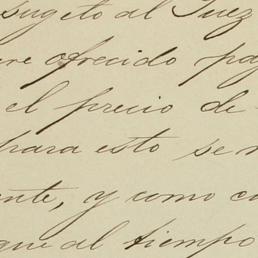 sugeto al Juez
ofrecido pa
el precio de
para esto se
ente, y como co
que al tiempo